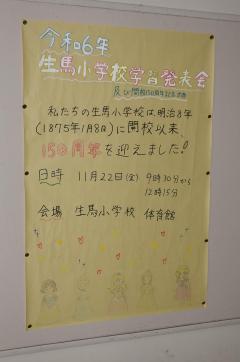 令和6年
生馬小学校学習発表会
及び開校150周年記念式典
私たちの生馬小学校は、明治8年
(1875年1月8日)に開校以来、
150周年を迎えました!
日時 11月22日(金) 9時30分から
12時15分
会場 生馬小学校 体育館